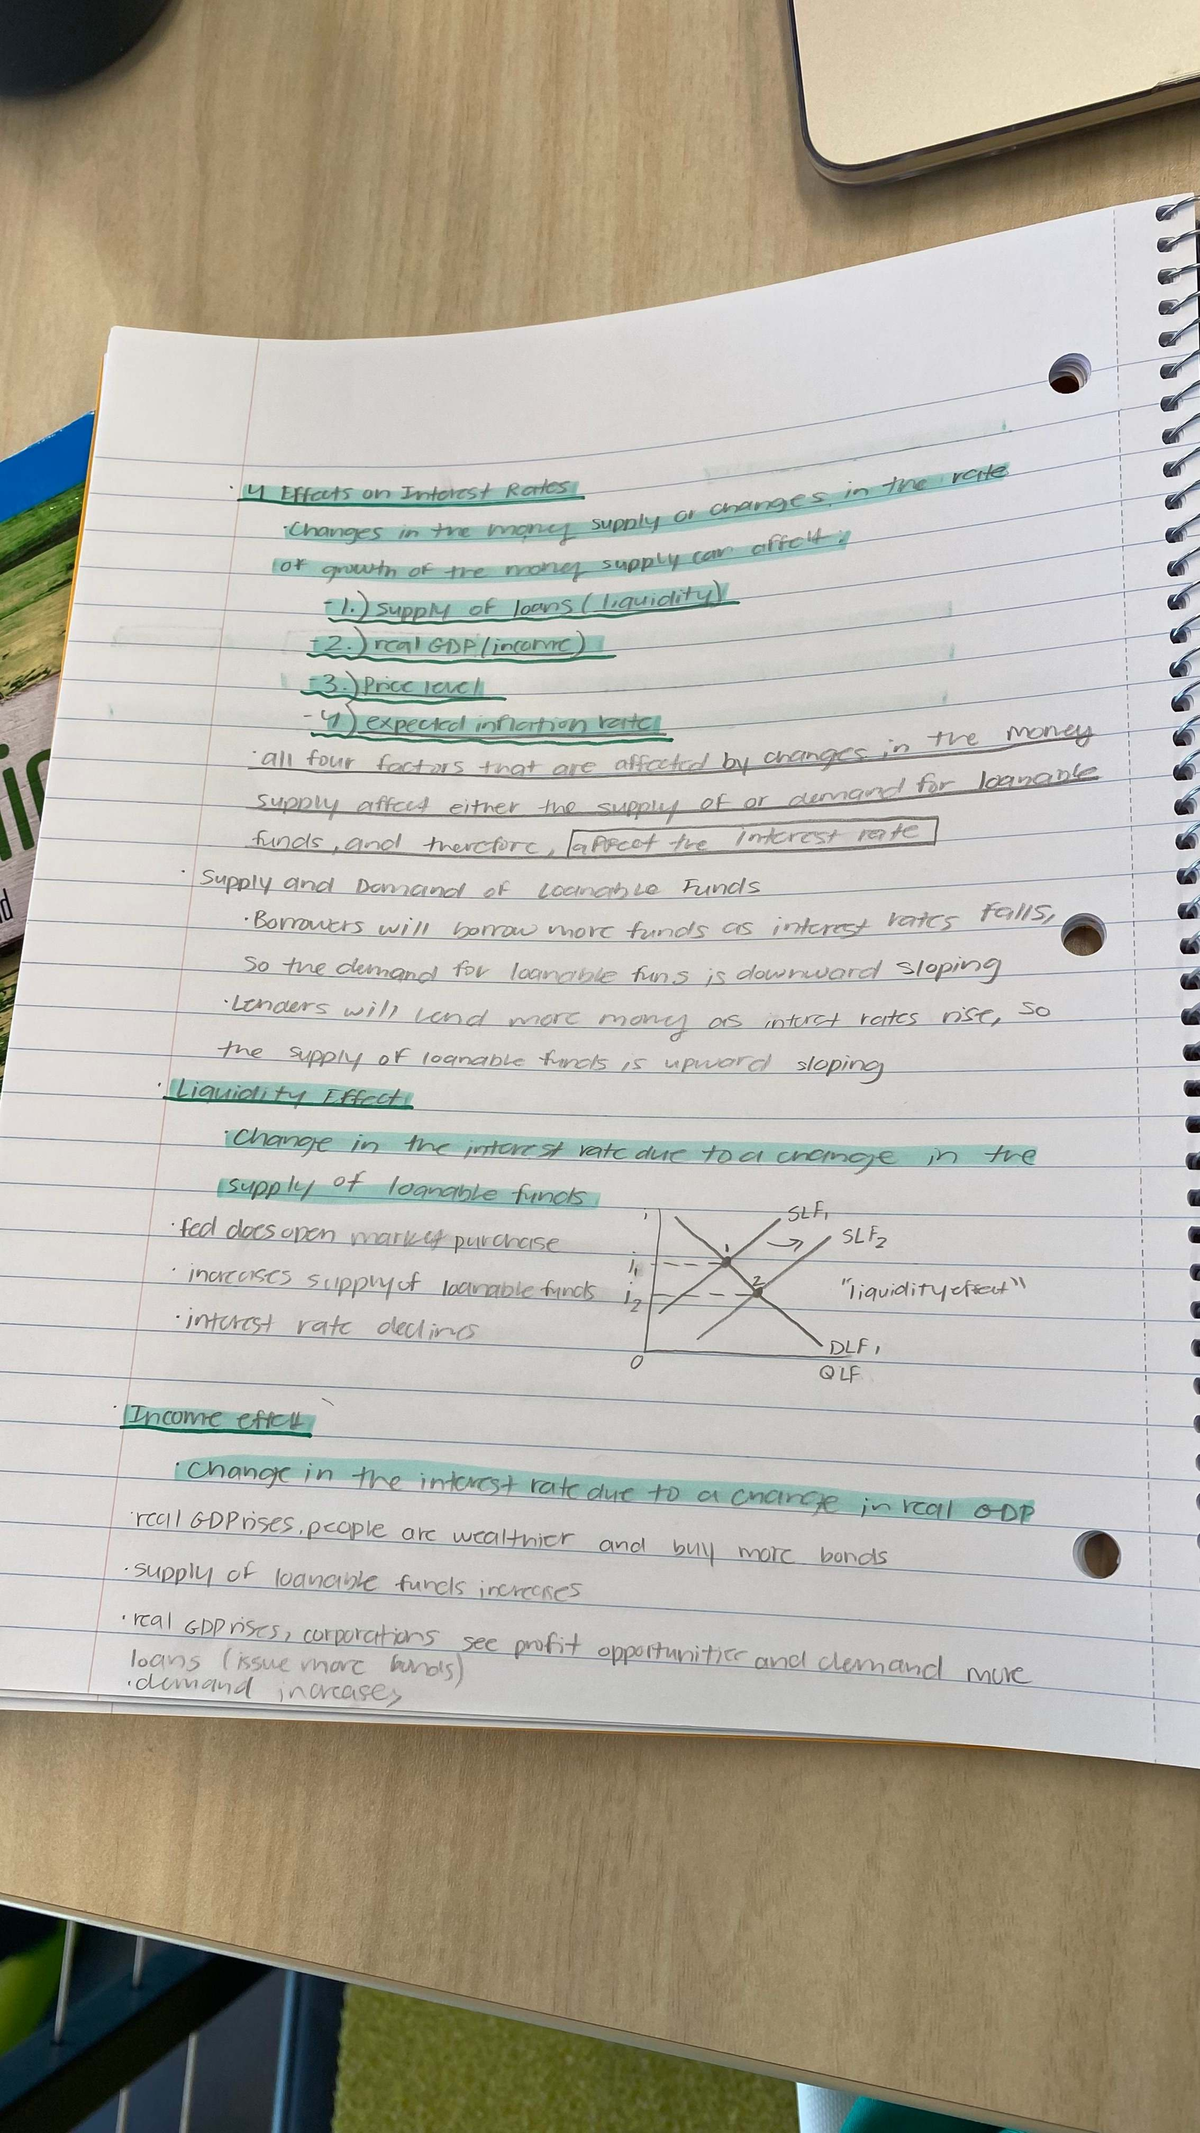 · 4 Effects on Interest Rates
· Changes in the money supply or changes in the rate
of growth of the money supply can affect:
- 1.) supply of loans (liquidity)
- 2.) real GDP (income)
- 3.) Price level
- 4) expected inflation rate
· all four factors that are affected by changes in the money
supply affect either the supply of or demand for loanable
funds, and therefore, affect the interest rate
· Supply and Demand of Loanable Funds
· Borrowers will borrow more funds as interest rates falls,
so the demand for loanable funs is downward sloping
· Lenders will lend more money as interst rates rise, so
the supply of loanable funds is upward sloping
· Liquidity Effect
· change in the interest rate due to a change in the
supply of loanable funds
· fed does open market purchase
· increases supply of loanable funds
· interest rate declines
i
SLF1
SLF2
1
i1
2
i2
"liquidity effect"
DLF1
0
QLF
· Income effect
· Change in the interest rate due to a change in real GDP
· real GDP rises, people are wealthier and buy more bonds
· supply of loanable funds increases
· real GDP rises, corporations see profit opportunities and demand more
loans (issue more bonds)
· demand increases
in
d